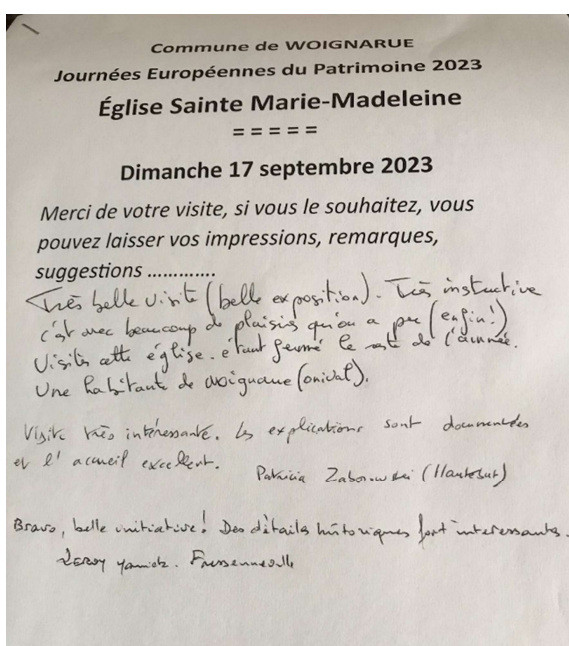 Commune de WOIGNARUE
Journées Européennes du Patrimoine 2023
Église Sainte Marie-Madeleine
= = = = =
Dimanche 17 septembre 2023
Merci de votre visite, si vous le souhaitez, vous
pouvez laisser vos impressions, remarques,
suggestions .............
Très belle visite (belle exposition). Très instructive
c'est avec beaucoup de plaisir qu'on a pu (enfin!)
Visiter cette église. étant fermé le reste de l'année.
Une habitante de woignarue (onival).
Visite très intéressante. Les explications sont documentées
et l'accueil excellent.
Patricia (Hautebut)
Bravo, belle initiative! Des détails historiques fort intéressants.
LEROY Yannick. Fressenneville